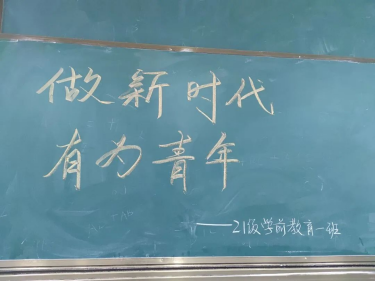 做新时代
有为青年
——21级学前教育一班